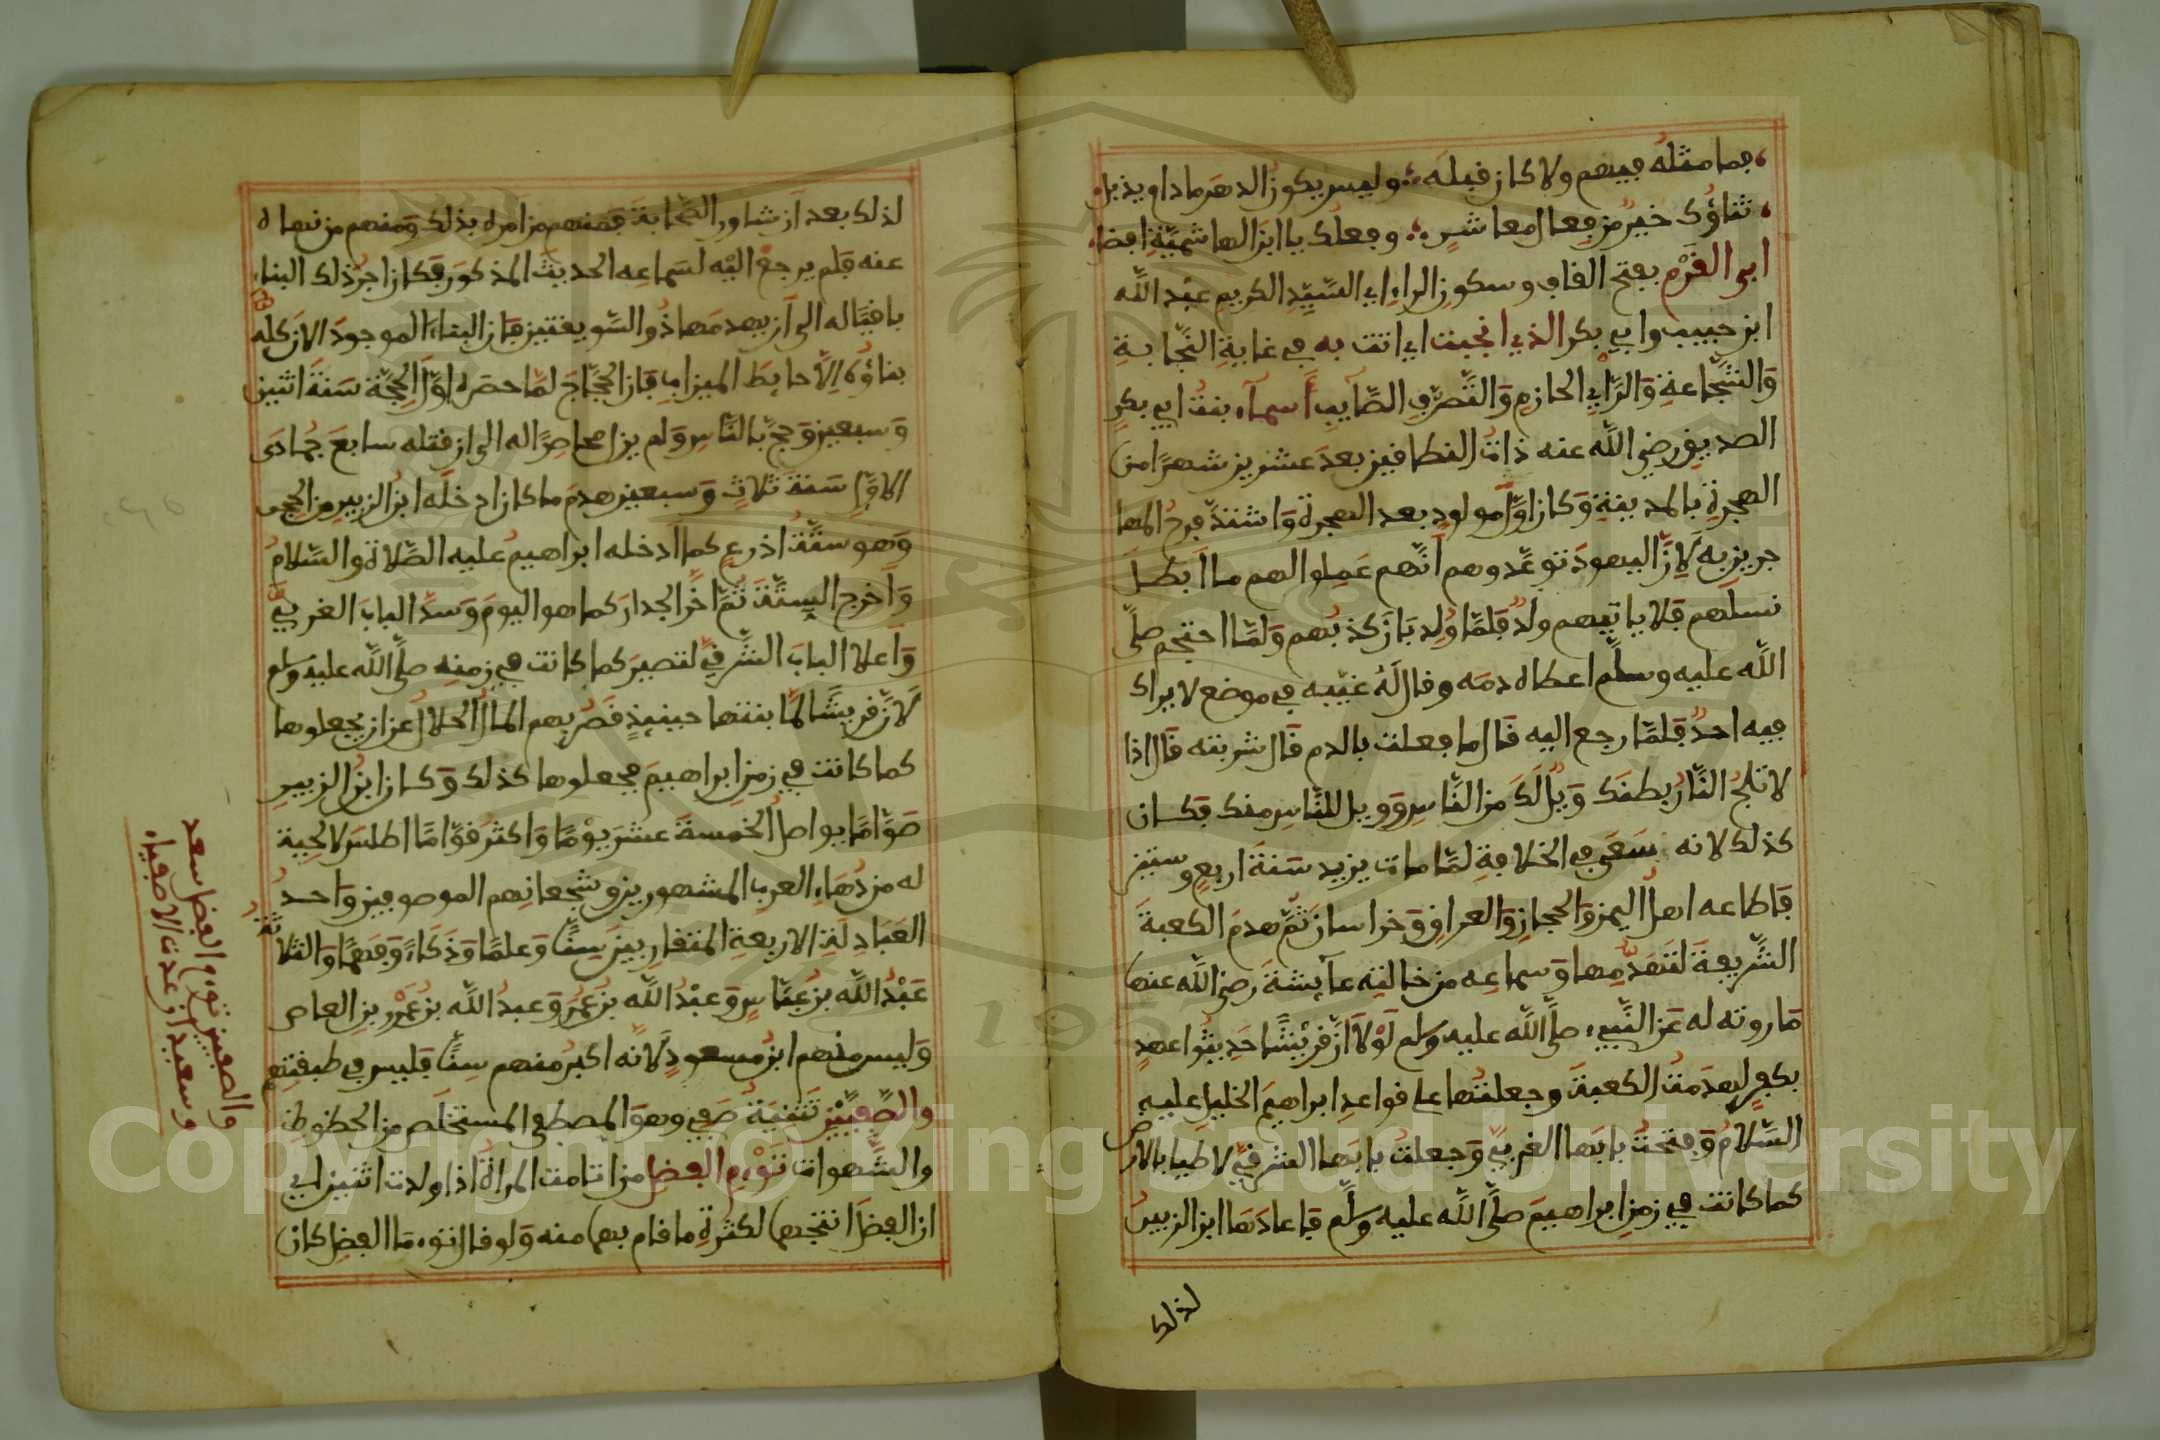 فما مثله فيهم ولا كان قبله وليس يكون الدهر ما دام يذبل
ثناؤك خير من فعال معاشر وفعلك يا ابن الهاشمية افضل
ابي القرم بفتح القاف وسكون الراء اي السيد الكريم عبد الله
ابن حبيب وابي بكر الذي انجبت اي اتت به في غاية النجابة
والشجاعة والراي الحازم والتصرف الصايب أسماء بنت ابي بكر
الصديق رضي الله عنه ذات النطاقين بعد عشرين شهرا من
الهجرة بالمدينة وكان اول مولود بعد الهجرة واشتد فرح المها
جرين به لان اليهود توعدوهم انهم عملوا لهم ما ابطل
نسلهم فلا ياتيهم ولد فلما ولد بان كذبهم ولما احتجم صلى
الله عليه وسلم اعطاه دمه وقال له غيبه في موضع لا يراك
فيه احد فلما رجع اليه قال ما فعلت بالدم قال شربته قال اذا
لا تلج النار بطنك ويل لك من الناس وويل للناس منك فكان
كذلك لانه سعى في الخلافة لما مات يزيد سنة اربع وستين
فاطاعه اهل اليمن والحجاز والعراق وخراسان ثم هدم الكعبة
الشريفة لتهدمها وسماعه من خالته عايشة رضي الله عنها
ما روته له عن النبيء صلى الله عليه وسلم لولا ان قريشا حديثوا عهد
بكفر لهدمت الكعبة وجعلتها على قواعد ابراهيم الخليل عليه
السلام وفتحت بابها الغربي وجعلت بابها الشرقي لاطيا بالارض
كما كانت في زمن ابراهيم صلى الله عليه وسلم فاعادها ابن الزبير
لذلك
لذلك بعد ان شاور الصحابة فمنهم من امره بذلك ومنهم من نهاه
عنه فلم يرجع اليه لسماعه الحديث المذكور فكان اجر ذلك البناء
باقيا له الى ان يهدمها ذو السويقتين فان البناء الموجود الان كله
بناؤه الا حايط الميزاب فان الحجاج لما حصره اول الحجة سنة اثنين
وسبعين وحج بالناس ولم يزل محاصرا له الى ان قتله سابع جمادى
الاول سنة ثلاث وسبعين هدم ما كان ادخله ابن الزبير من الحجر
وهو ستة اذرع كما ادخله ابراهيم عليه الصلاة والسلام
واخرج الستة ثم اخر الجدار كما هو اليوم وسد الباب الغربي
واعلا الباب الشرقي لتصير كما كانت في زمنه صلى الله عليه وسلم
لان قريشا لما بنتها حينيذ قصر بهم المال الحلال عن ان يجعلوها
كما كانت في زمن ابراهيم فجعلوها كذلك وكان ابن الزبير
صواما يواصل الخمسة عشر يوما واكثر قواما اطلس لا لحية
له من دهاء العرب المشهورين وشجعانهم الموصوفين واحد
العبادلة الاربعة المتقاربين سنا وعلما وذكاء وفهما والثلاثة
عبد الله بن عباس وعبد الله بن عمر وعبد الله بن عمرو بن العاص
وليس منهم ابن مسعود لانه اكبر منهم سنا فليس في طبقتهم
والصفيين تثنية صفي وهو المصطفى المستخلص من الحظوظ
والشهوات توءم الفضل من اتامت المراة اذا ولدت اثنين اي
ان الفضل انتجهما لكثرة ما قام بهما منه ولو قال توءما الفضل كان
والصفيين توءم الفضل سعد
وسعيد ان عدت الاصفياء